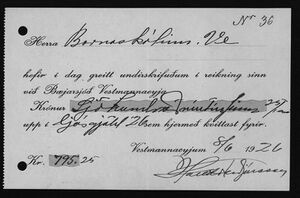 Nr 36
Herra Barnaskólinn. Ve
hefir í dag greitt undirskrifuðum í reikning sinn
við Bæjarsjóð Vestmannaeyja
Krónur Sjö hundruð 25/100
upp í 26 sem hjermeð kvittast fyrir.
Vestmannaeyjum 8/6 1926
Kr. 795.25